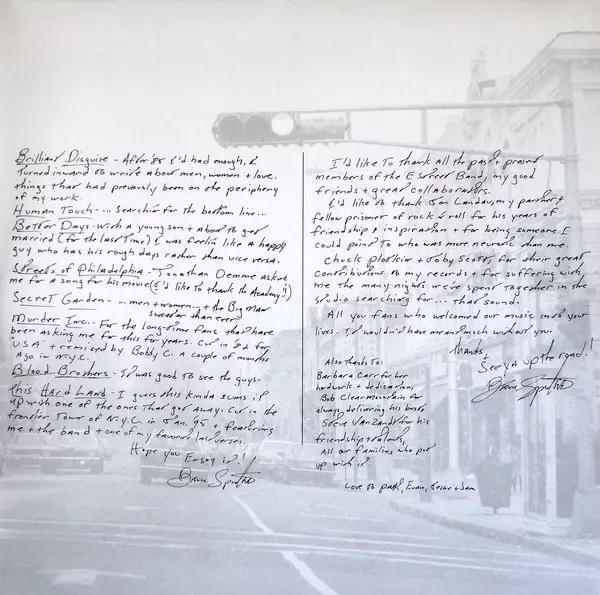 Brilliant Disguise - After '85 I'd had enough. I
turned inward to write about men, women + love,
things that had prevously been on the periphery
of my work.
Human Touch - ... Searchin' for the bottom line...
Better Days - with a young son + about to get
married (for the last time) I was feelin' like a happy
guy who has his rough days rather than vice versa.
Streets of Philadelphia - Jonathan Demme asked
me for a song for his movie (I'd like to thank the Academy..!!)
Secret Garden - ... men + women... + the Big Man
sweeter than ever.
Murder Inc. - For the long-time fans that have
been asking me for this for years. Cut in '82 for
"USA" + remixed by Bobby C. a couple of months
ago in N.Y.C.
Blood Brothers - It was good to see the guys.
This Hard Land - I guess this kinda sums it
up with one of the ones that got away. Cut in the
frontier town of N.Y.C. in Jan, 95 + featuring
me + the band + one of my favorite last verses.
Hope you enjoy it!
Bruce Springsteen
I'd like to thank all the past + present
members of the E Street Band, my good
friends + great collaborators.
I'd like to thank Jon Landau, my partner +
fellow prisoner of rock + roll for his years of
friendship + inspiration + for being someone I
could point to who was more neurotic than me.
Chuck Plotkin + Toby Scott, for their great
contributions to my records + for suffering with
me the many nights we've spent together in the
studio searching for... that sound.
All you fans who welcomed our music into your
lives - It wouldn't have meant much without you.
Thanks,
See ya up the road!
Bruce Springsteen
Also thanks to:
Barbara Carr for her
hardwork + dedication,
Bob Clearmountain for
always delivering his best,
Steve Van Zandt for his
friendship + talents,
All our families who put
up with it
Love to Patti, Evan, Jessie + Sam